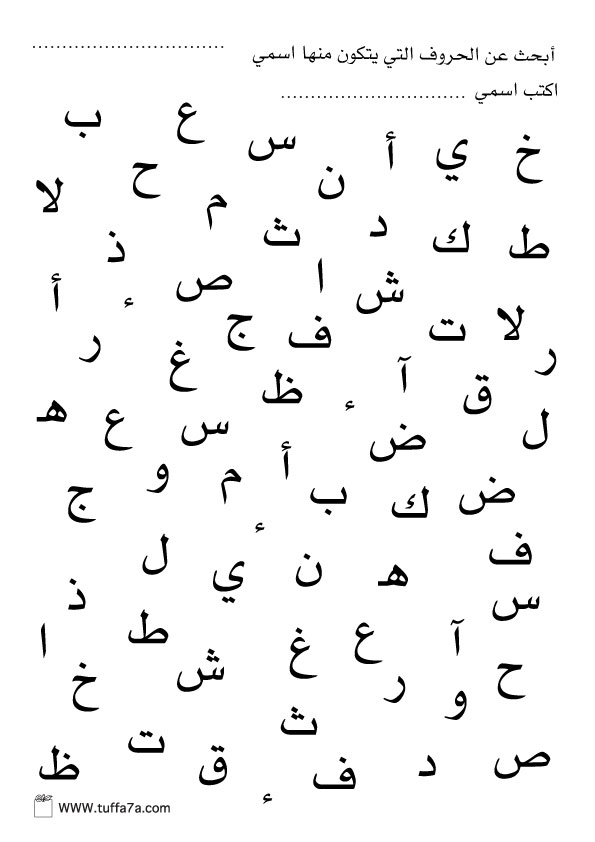 أبحث عن الحروف التي يتكون منها اسمي ................................
اكتب اسمي ...............................
ب ع س أ ي خ
لا ح م ن
ذ ث د ك ط
أ ء ص ا ش
ر ج ف ت لا ر
غ ظ ء آ ق
ه ع س ض ل
ج و م أ ب ك ض
ء
ل ي ن ه ف
ذ س
ا ط غ ع آ
خ ش ر و ح
ث
ظ ت ق ف د ص
ء
WWW.tuffa7a.com